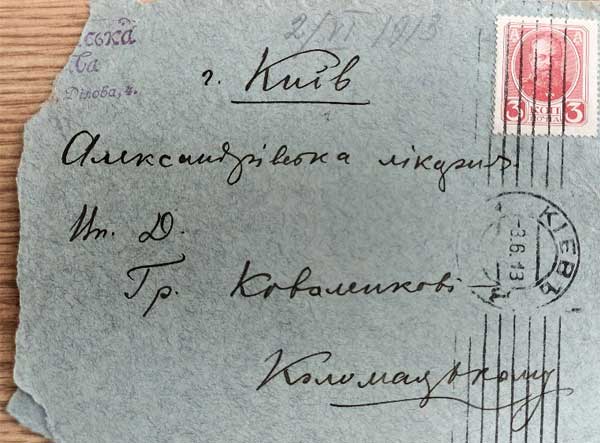 ська
ва
Дїлова, 4.
2/VI 1913
г. Київ
Александрівська лікарня.
Ип. Д.
Гр. Коваленкові
Коломацькому
3 КОП 3
КІЕВЪ
-3.6.13